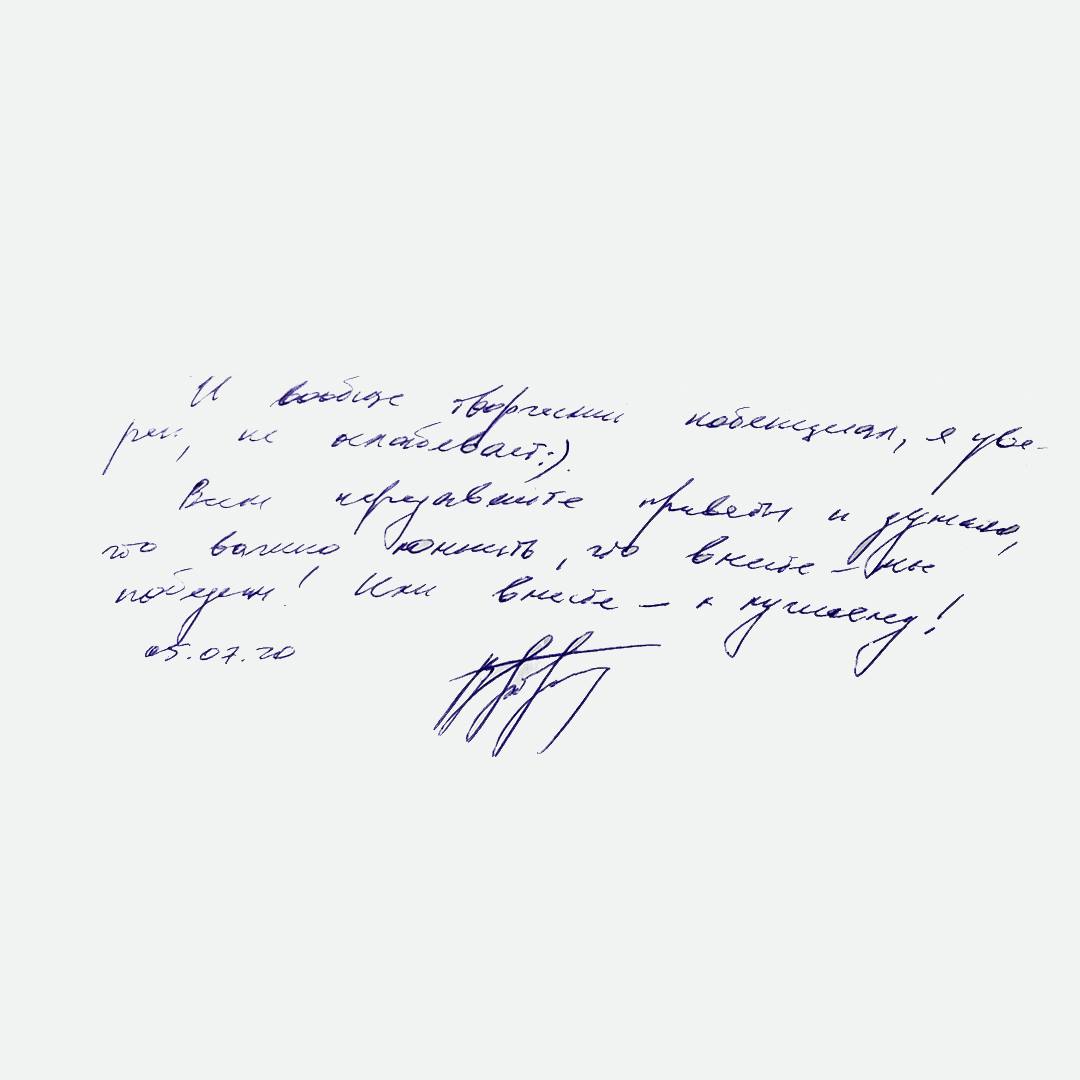 И вообще творческий потенциал, я уве-
рен, не ослабевает:).
Всем передавайте приветы и думаю,
что важно помнить, что вместе – мы
победим! Или вместе – к лучшему!
05.07.20